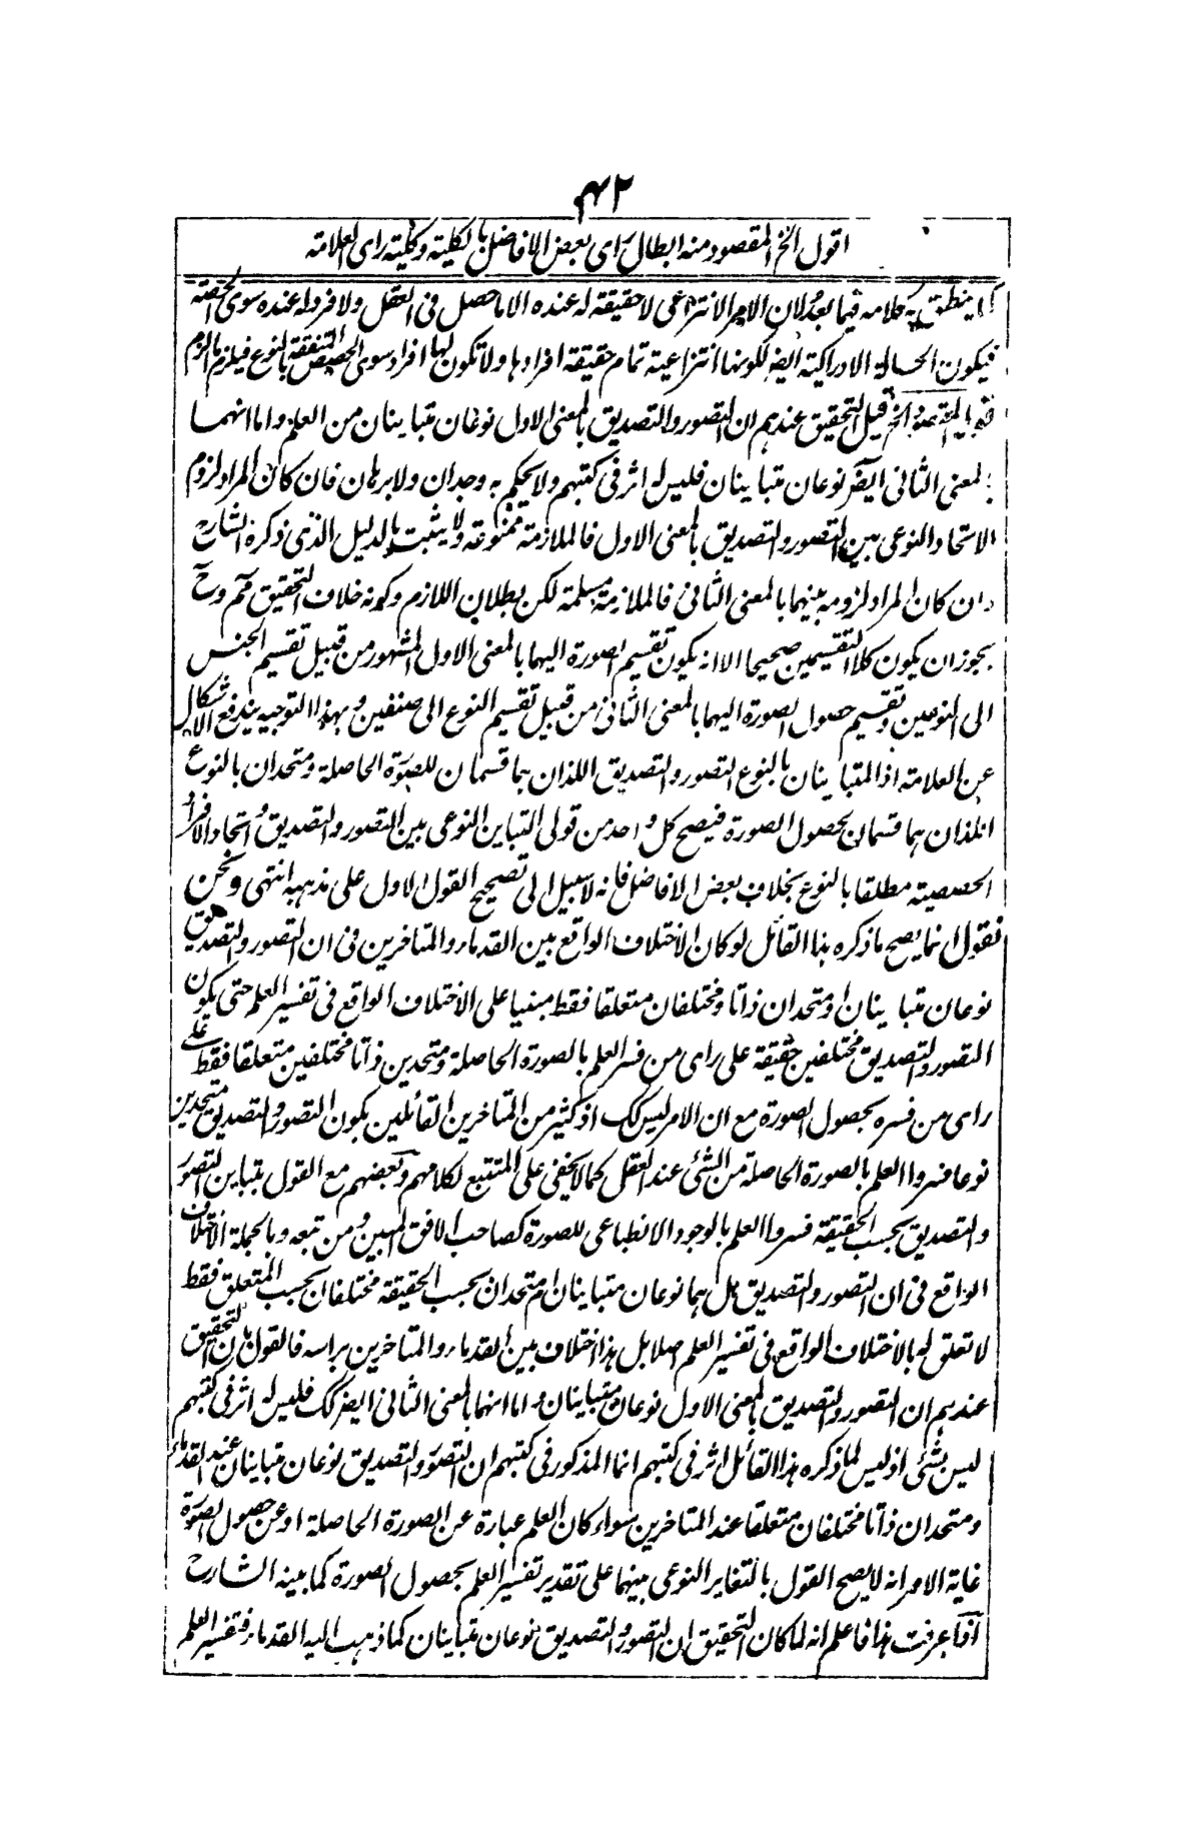 ٤٢
اقول الخ المقصود منه ابطال رأى بعض الافاضل بالكلية وكلية راى العلامه
كما ينطبق به كلامه فيما بعد لان الامر الانتزاعى لا حقيقة له عنده الا ما حصل فى العقل ولا فرد له عنده سوى الحصة
فيكون الحالة الادراكية ايضا لكونها انتزاعية تمام حقيقة افرادها ولا تكون لها افراد سوى الحصص المتفقة بالنوع فيلزم ما لزم
قيل التحقيق عندهم ان التصور والتصديق بالمعنى الاول نوعان متباينان من العلم واما انهما
بالمعنى الثانى ايضا نوعان متباينان فليس له اثر فى كتبهم ولا يحكم به وجدان ولا برهان فان كان المراد لزوم
الاتحاد النوعى بين التصور والتصديق بالمعنى الاول فالملازمة ممنوعة ولا يثبت بالدليل الذى ذكره الشارح
وان كان المراد لزومه بينهما بالمعنى الثانى فالملازمة مسلمة لكن بطلان اللازم وكونه خلاف التحقيق مم وح
يجوز ان يكون كلا التقسيمين صحيحا الا انه يكون تقسيم الصورة اليهما بالمعنى الاول المشهور من قبيل تقسيم الجنس
الى النوعين وتقسيم حصول الصورة اليهما بالمعنى الثانى من قبيل تقسيم النوع الى صنفين وبهذا التوجيه يندفع الاشكال
عن العلامه اذ المتباينان بالنوع التصور والتصديق اللذان هما قسمان للصورة الحاصلة ومتحدان بالنوع
اللذان هما قسمان لحصول الصورة فيصح كل واحد من قولى التباين النوعى بين التصور والتصديق واتحاد الافراد
الحصصية مطلقا بالنوع بخلاف بعض الافاضل فانه لا سبيل الى تصحيح القول الاول على مذهبه انتهى ونحن
نقول انما يصح ما ذكره هذا القائل لو كان الاختلاف الواقع بين القدماء والمتاخرين فى ان التصور والتصديق هل
نوعان متباينان او متحدان ذاتا ومختلفان متعلقا فقط مبنيا على الاختلاف الواقع فى تفسير العلم حتى يكون
التصور والتصديق مختلفين حقيقة على راى من فسر العلم بالصورة الحاصلة ومتحدين ذاتا مختلفين متعلقا فقط على
راى من فسره بحصول الصورة مع ان الامر ليس كك اذ كثير من المتاخرين القائلين بكون التصور والتصديق متحدين
نوعا فسروا العلم بالصورة الحاصلة من الشئ عند العقل كما لا يخفى على المتتبع لكلامهم وبعضهم مع القول بتباين التصور
والتصديق بحسب الحقيقة فسروا العلم بالوجود الانطباعى للصورة كصاحب الافق المبين ومن تبعه وبالجملة الاختلاف
الواقع فى ان التصور والتصديق هل هما نوعان متباينان ام متحدان بحسب الحقيقة مختلفان بحسب المتعلق فقط
لا تعلق له بالاختلاف الواقع فى تفسير العلم اصلا بل هذا اختلاف بين القدماء والمتاخرين براسه فالقول بان التحقيق
عندهم ان التصور والتصديق بالمعنى الاول نوعان متباينان واما انهما بالمعنى الثانى ايضا كك فليس له اثر فى كتبهم
ليس بشئ اذ ليس لما ذكره هذا القائل اثر فى كتبهم انما المذكور فى كتبهم ان التصور والتصديق نوعان متباينان عند القدماء
ومتحدان ذاتا مختلفان متعلقا عند المتاخرين سواء كان العلم عبارة عن الصورة الحاصلة او عن حصول الصورة
غاية الامر انه لا يصح القول بالتغاير النوعى بينهما على تقدير تفسير العلم بحصول الصورة كما بينه الشارح
اذا عرفت هذا فاعلم انه لما كان التحقيق ان التصور والتصديق نوعان متباينان كما ذهب اليه القدماء فتفسير العلم